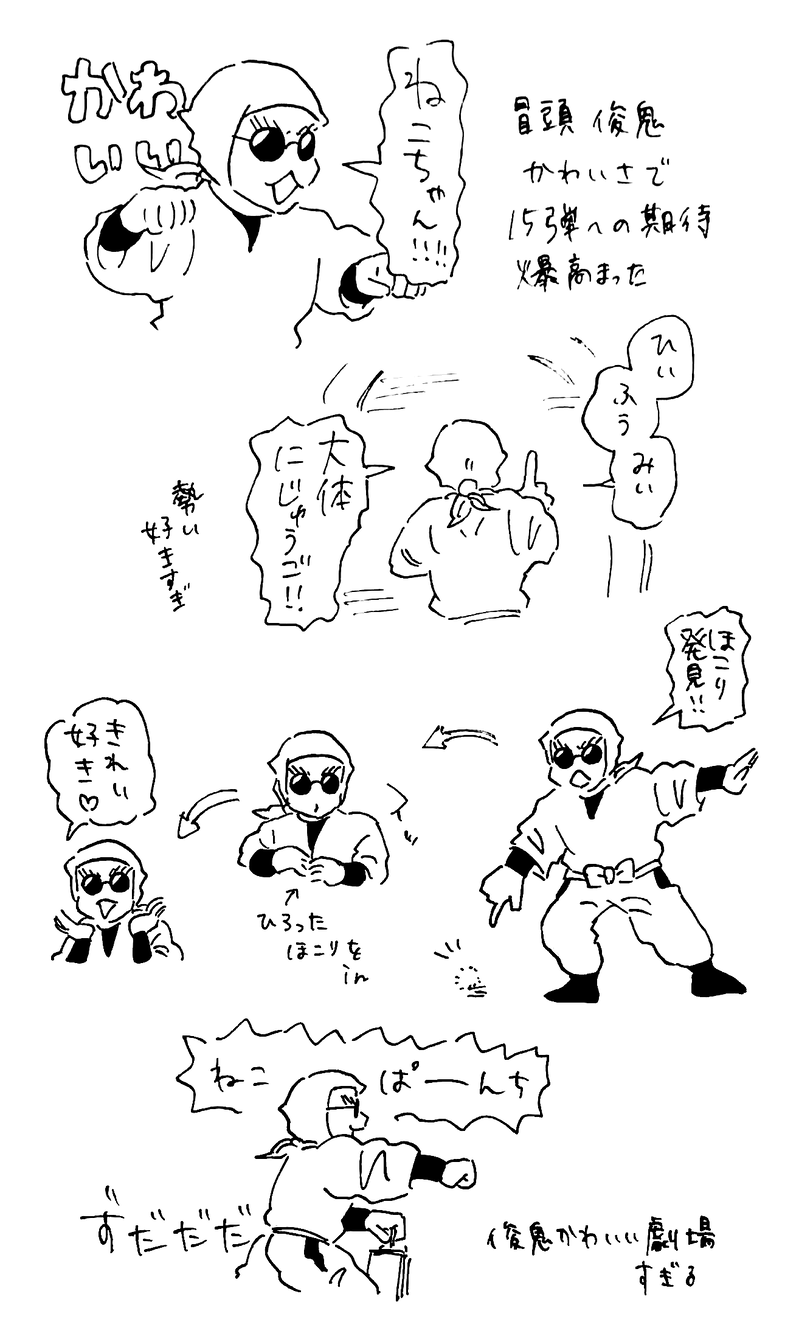 かわ
いい
ねこちゃん!!!!
冒頭 俊鬼
かわいさで
15弾への期待
爆高まった
ひい
ふう
みい
大体
にじゅうご!!
勢い
好きすぎ
ほこり
発見!!
ひろった
ほこりを
in
きれい
好き♡
ねこぱーんち
ずだだだ
俊鬼かわいい劇場
すぎる